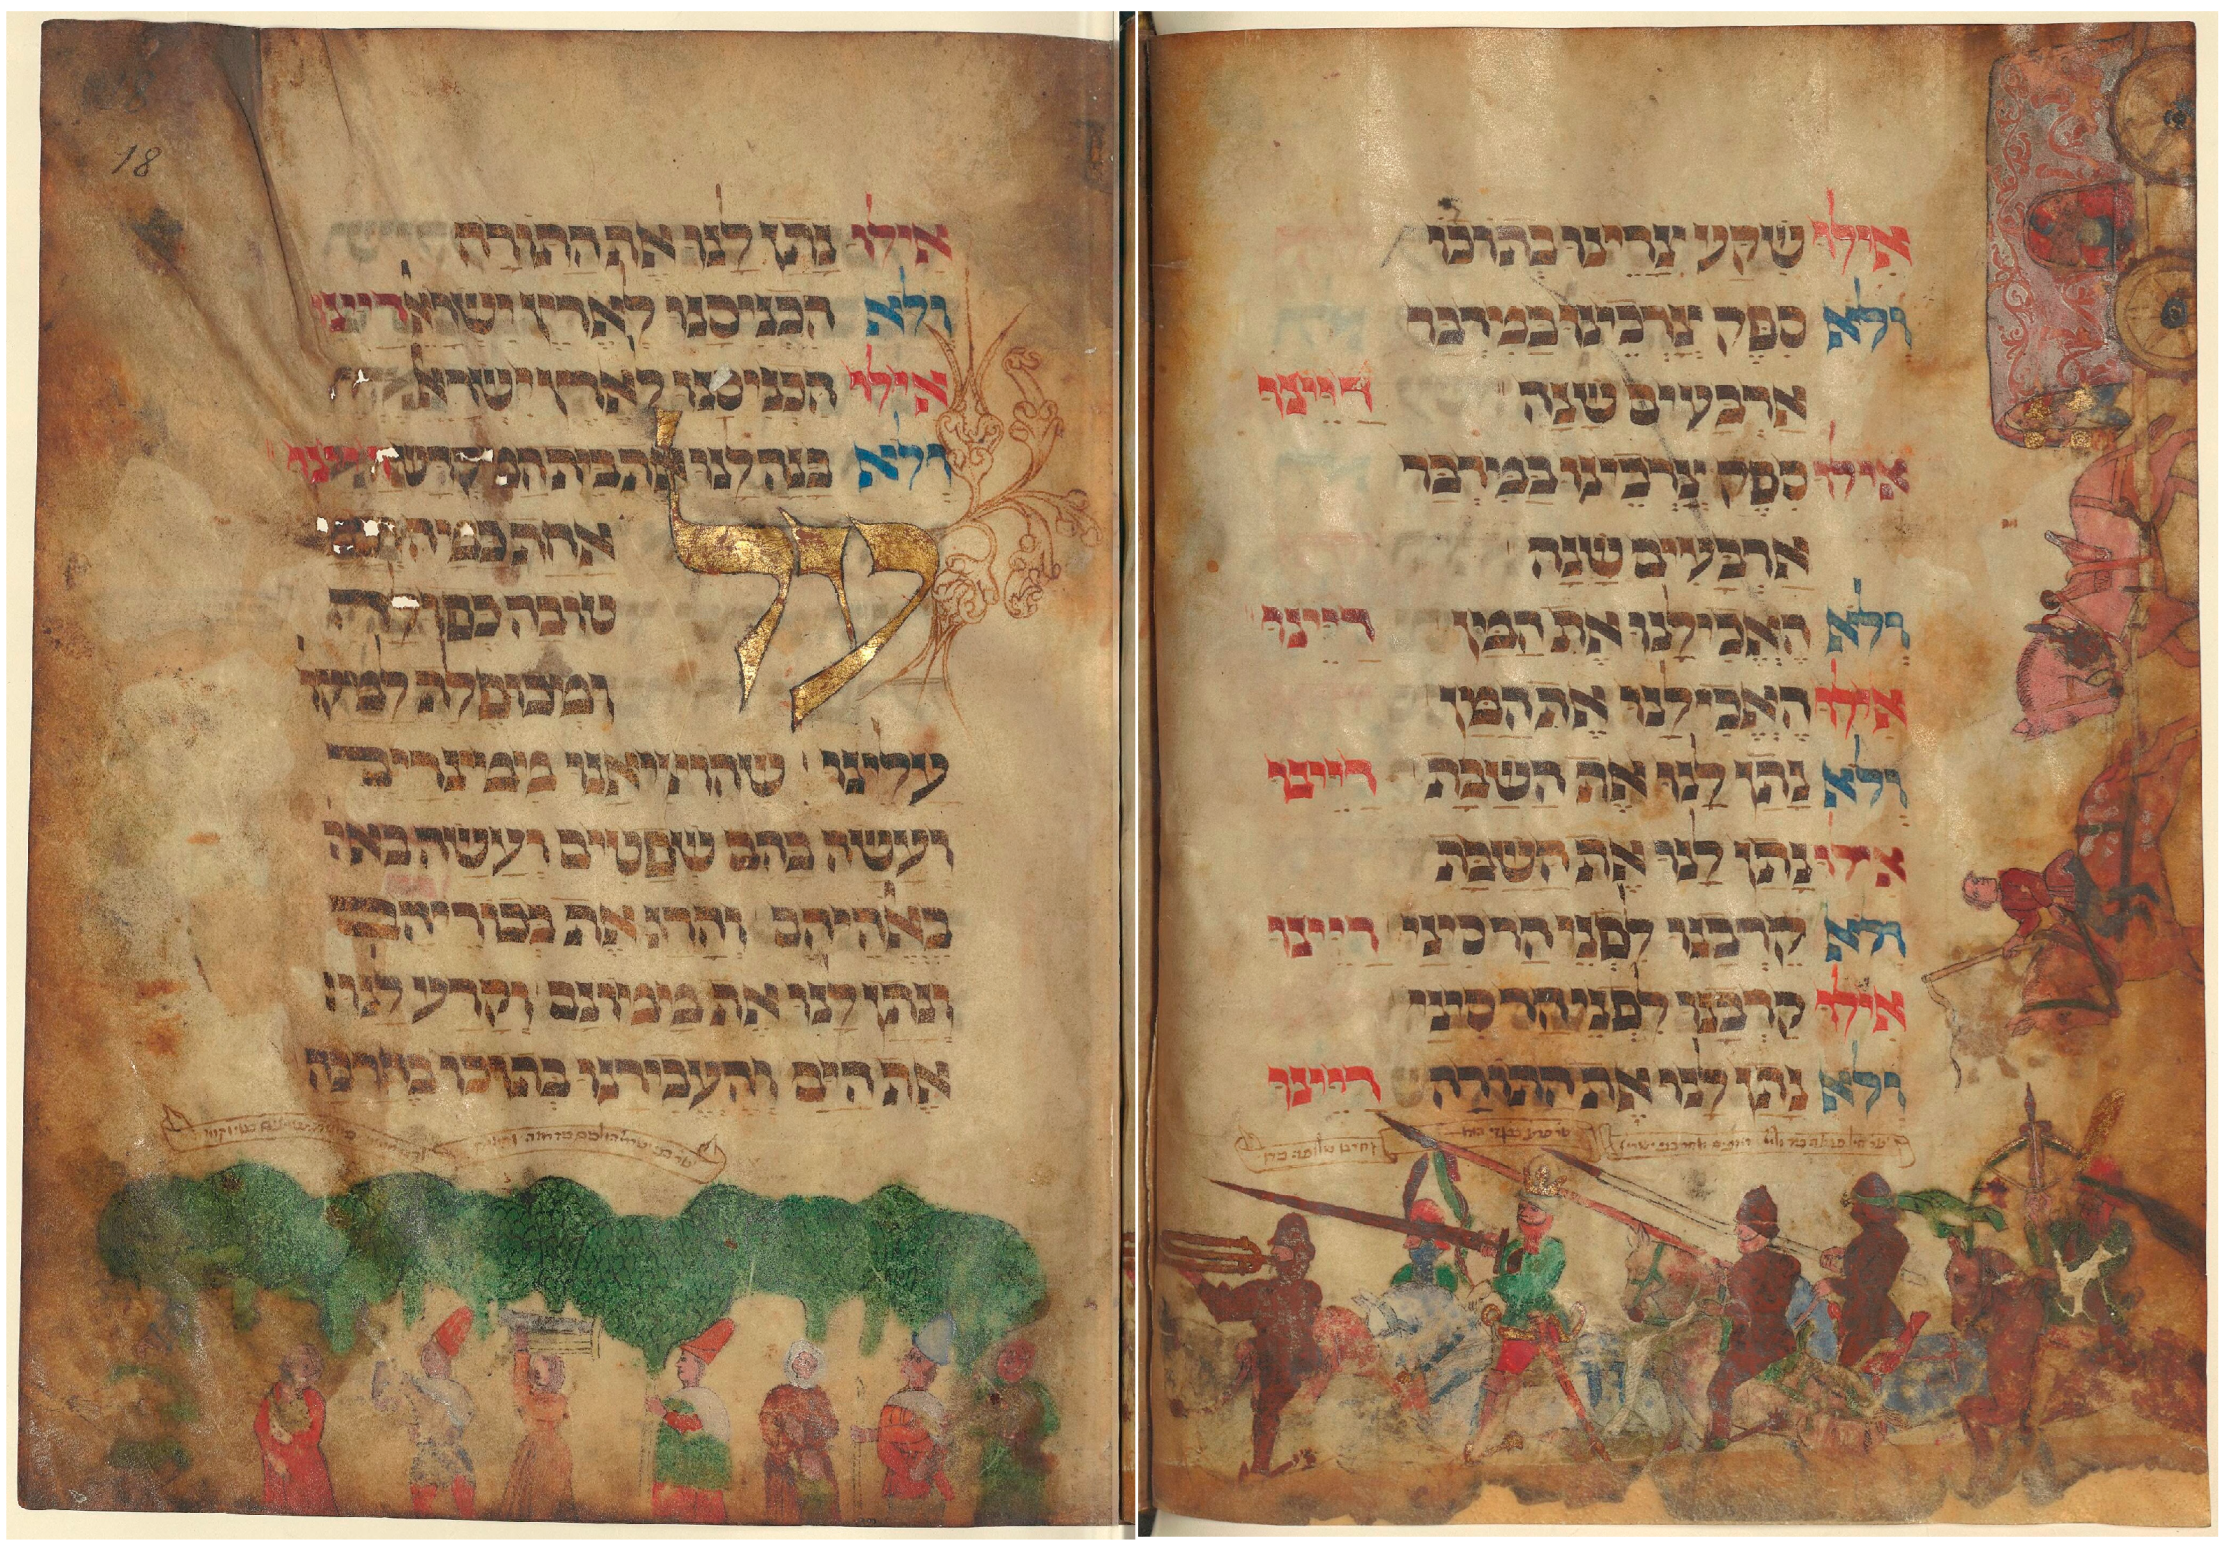 אילו שקע צרינו בתוכו
ולא סיפק צרכינו במדבר
ארבעים שנה דיינו
אילו סיפק צרכינו במדבר
ארבעים שנה
ולא האכילנו את המן דיינו
אילו האכילנו את המן
ולא נתן לנו את השבת דיינו
אילו נתן לנו את השבת
ולא קרבנו לפני הר סיני דיינו
אילו קרבנו לפני הר סיני
ולא נתן לנו את התורה דיינו
18
אילו נתן לנו את התורה
ולא הכניסנו לארץ ישראל דיינו
אילו הכניסנו לארץ ישראל
ולא בנה לנו את בית המקדש דיינו
על אחת כמה
טובה כפולה
ומכופלת למקו
עלינו שהוציאנו ממצרים
ועשה בהם שפטים ועשה באה
באלהיהם והרג את בכוריהם
ונתן לנו את ממונם וקרע לנו
את הים והעבירנו בתוכו בחרבה